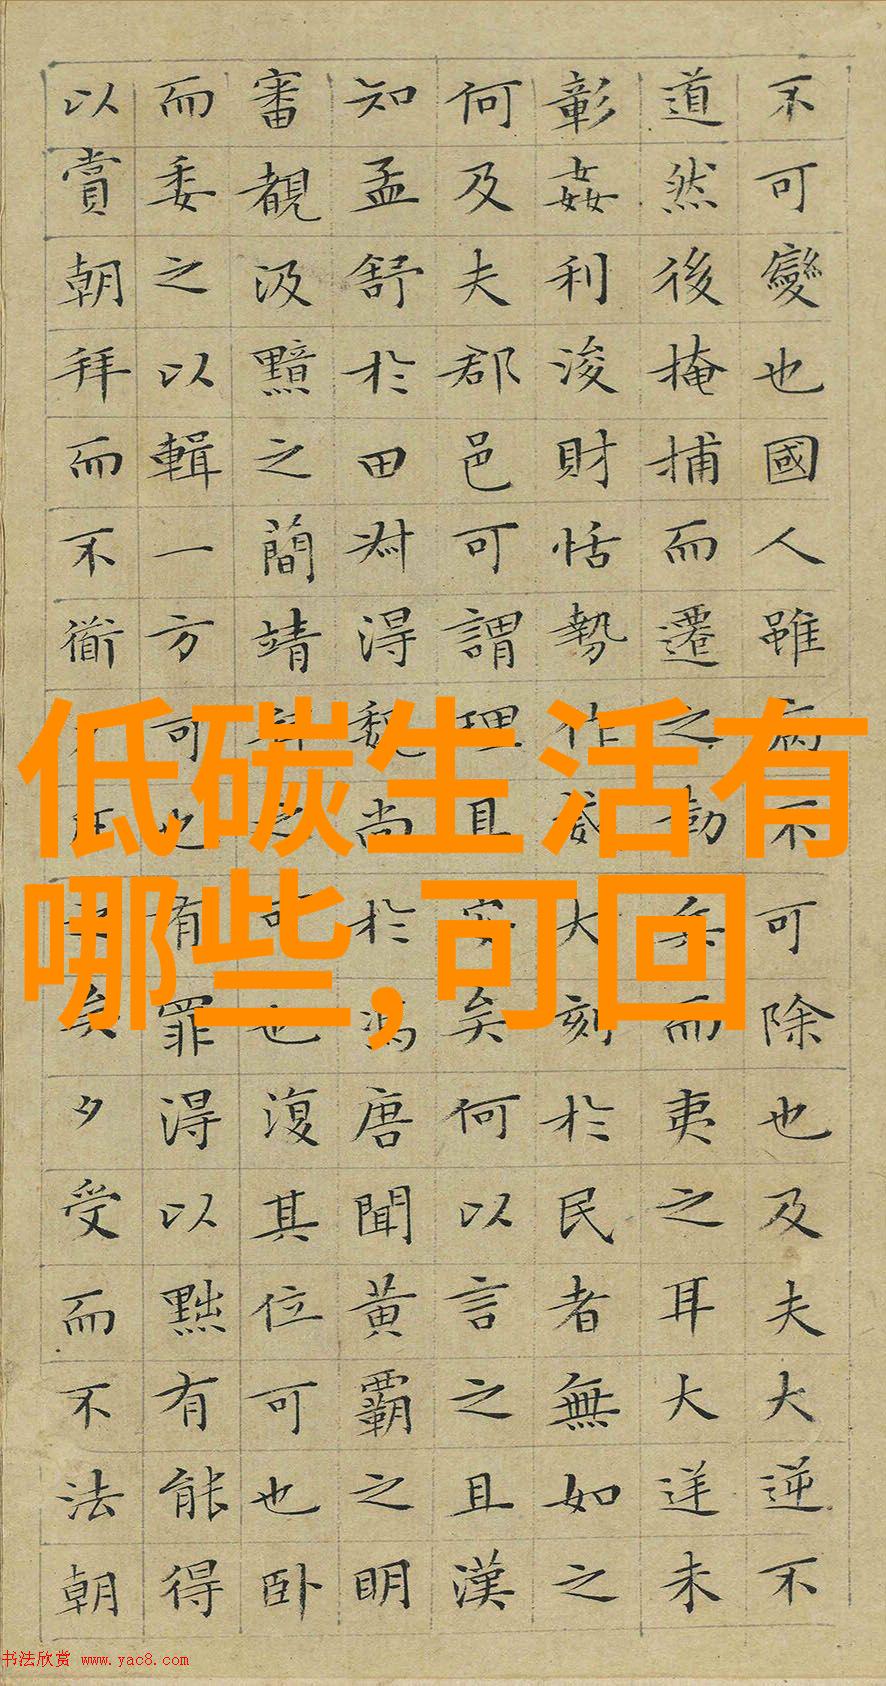 不可變也國人雖病不可除也及夫大逆不
道然後掩捕而遷之勒兵而夷之耳大逆未
彰姦利浚財恬勢作威大刻於民者無如之
何及夫郡邑可謂理且安矣何以言之且漢
知孟舒於田叔得魏尚於馮唐聞黃霸之明
審覩汲黯之簡靖拜之可也復其位可也卧
而委之以輯一方可也有罪得以黜有能得
以賞朝拜而不衜夕斥之矣夕受而不法朝
低碳生活有
哪些,可回
书法欣赏 www.yac8.com